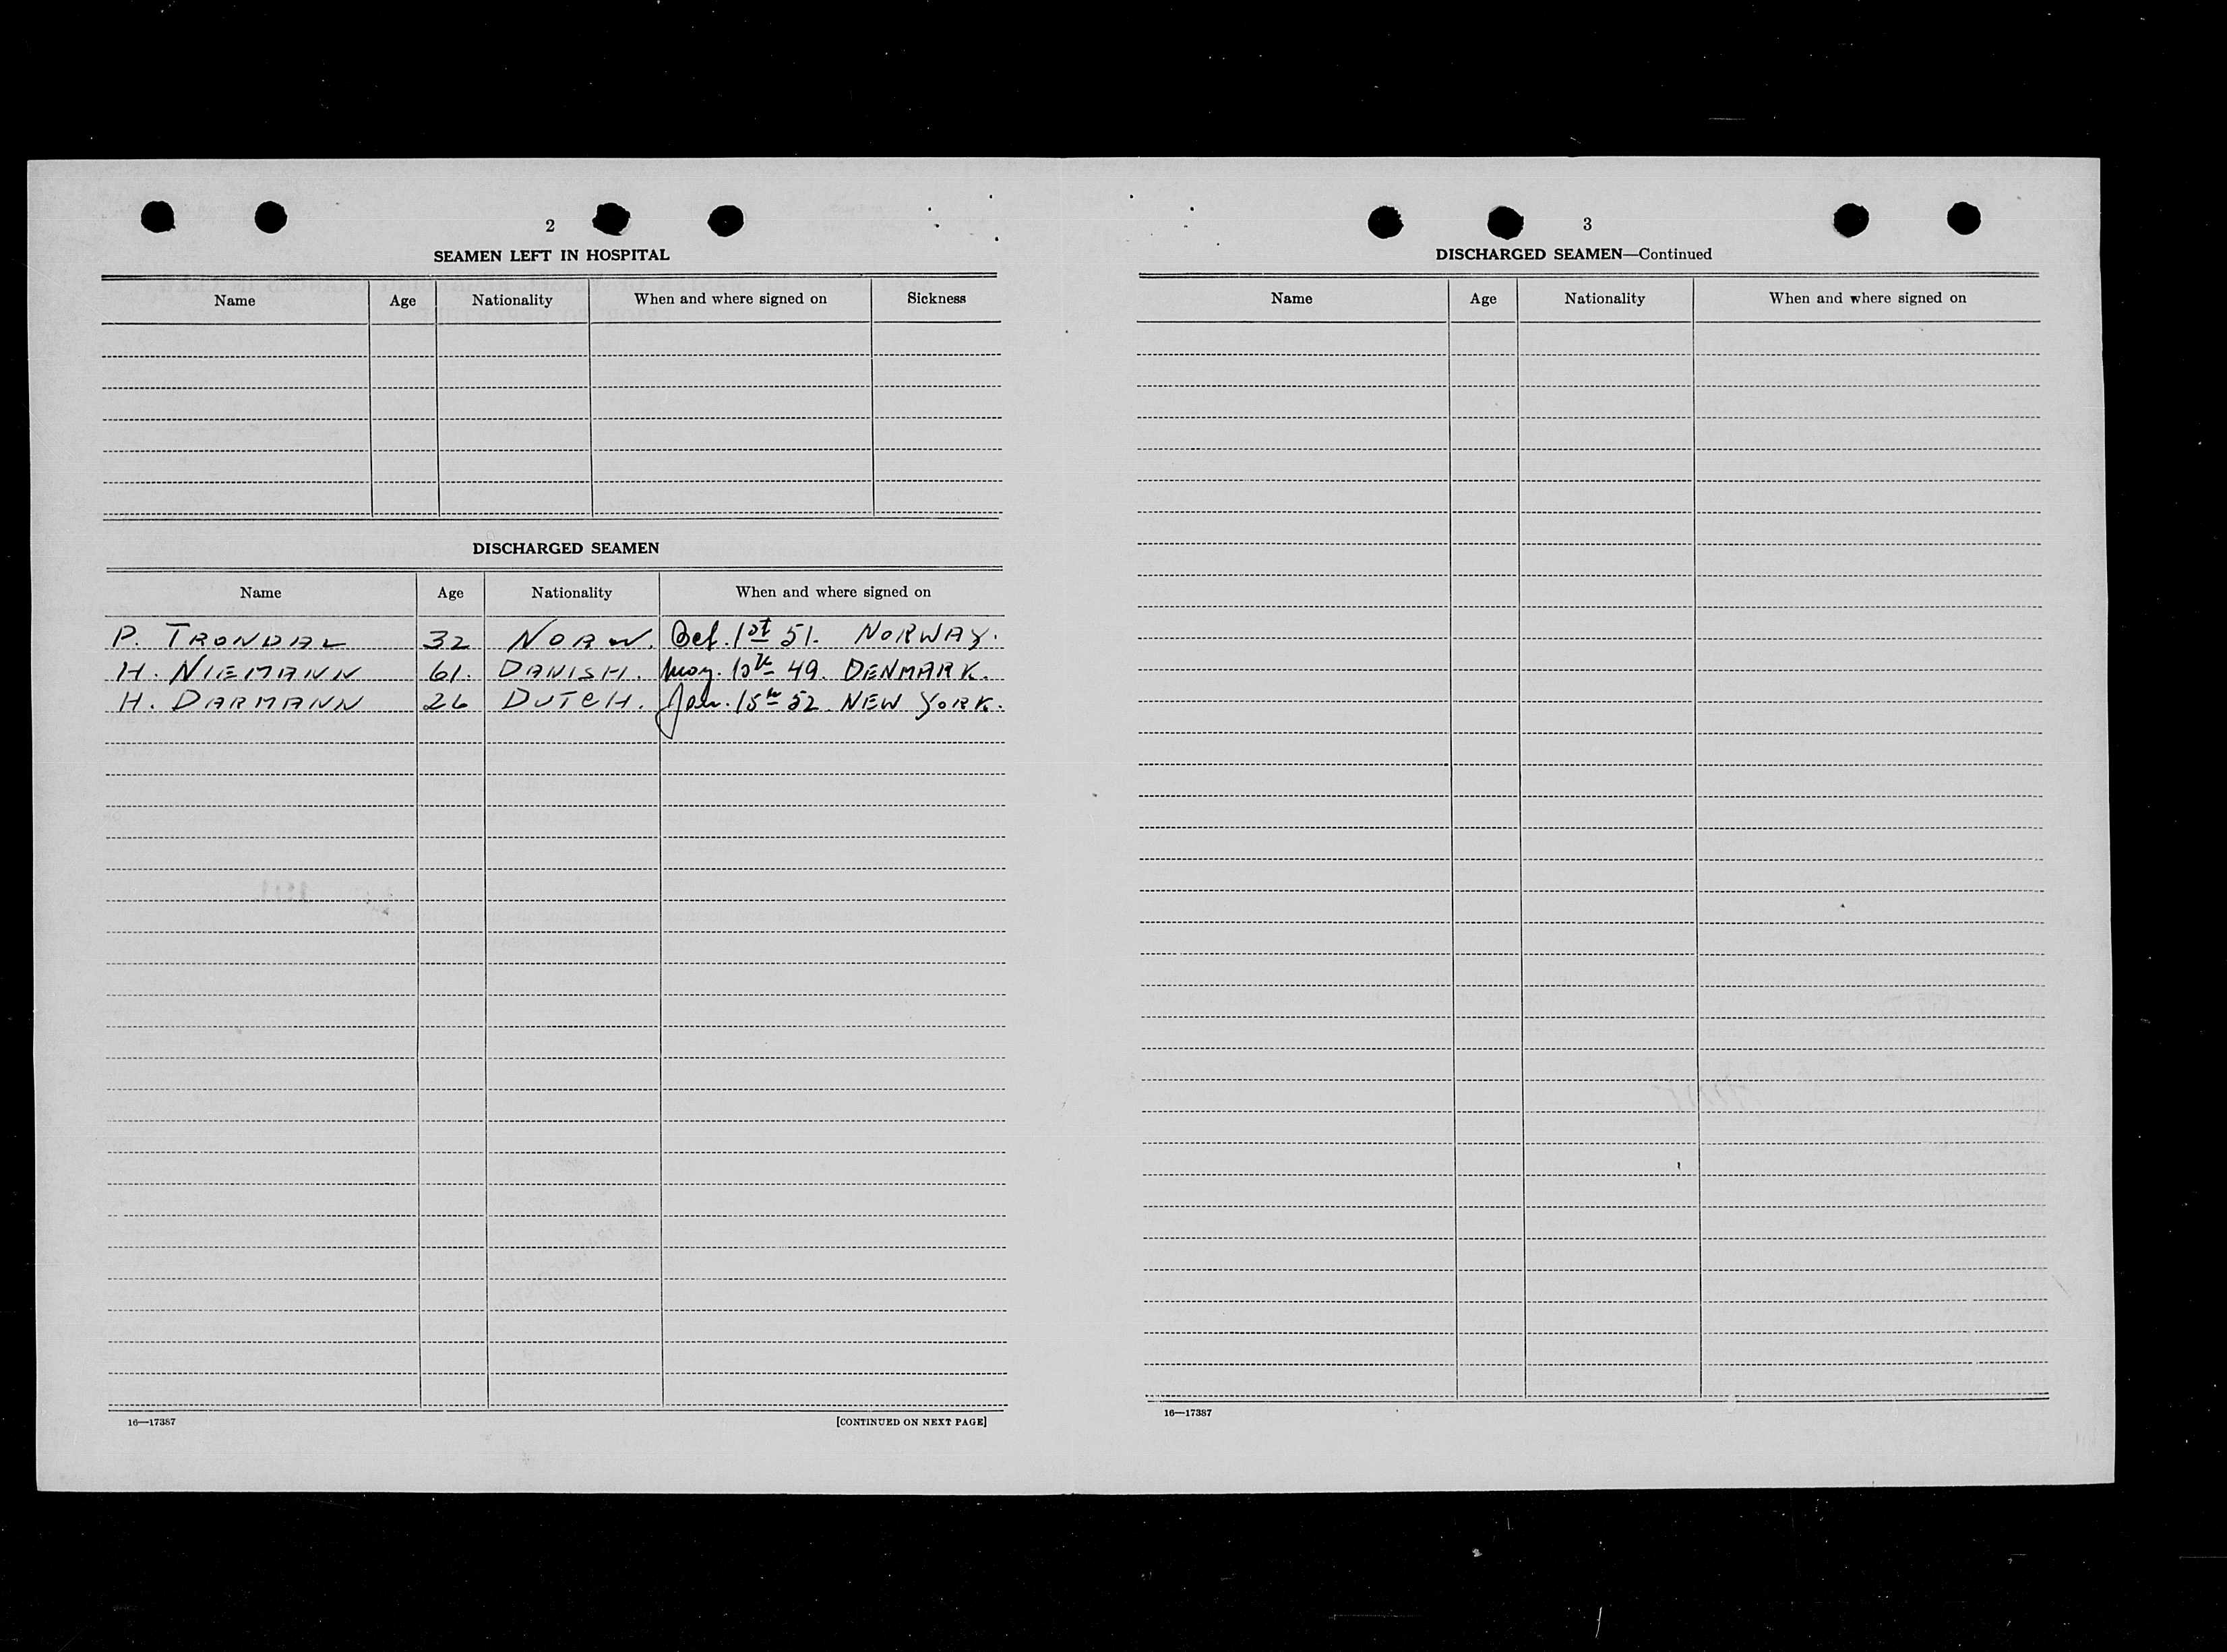 2
SEAMEN LEFT IN HOSPITAL
Name Age Nationality When and where signed on Sickness
DISCHARGED SEAMEN
Name Age Nationality When and where signed on
P. TRONDAL 32 NORW. Oct. 1st 51. NORWAY.
H. NIEMANN 61. DANISH. 49. DENMARK.
H. DARMANN 26 DUTCH. Jan. 15th 52. NEW YORK.
16—17387 [CONTINUED ON NEXT PAGE]
3
DISCHARGED SEAMEN—Continued
Name Age Nationality When and where signed on
16—17387